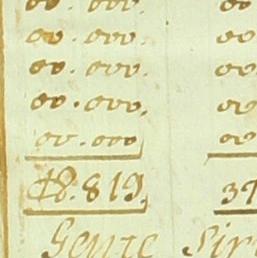 00.000. 00
00.000. 00
00.000. 00
00.000. 00
00.000 00
18.819, 37
Gente Sir